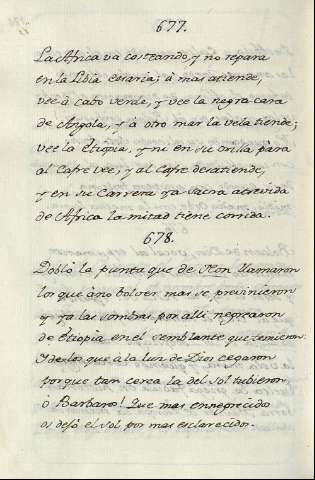 677.
La Africa va costeando, y no repara
en la Libia estaria; à mas atiende,
vee à cabo verde, y vee la negra cara
de Angola, y à otro mar la vela tiende;
vee la Etiopia, y ni en su orilla pàra
al Cafre vee, y al Cafre desatiende,
y en su Carrera ya sacra atrevida
de Africa la mitad tiene corrida.
678.
Doblò la punta que de Non llamaron
los que à no bolver mas se previnieron
y ya las sombras por alli negrearon
de Etiopia en el semblante que temieron.
Y de los que a la luz de Dios cegaron
porque tan cerca la del sol tubieron
ò Barbaros! Que mas ennegrecidos
os dejò el sol por mas esclarecidos.